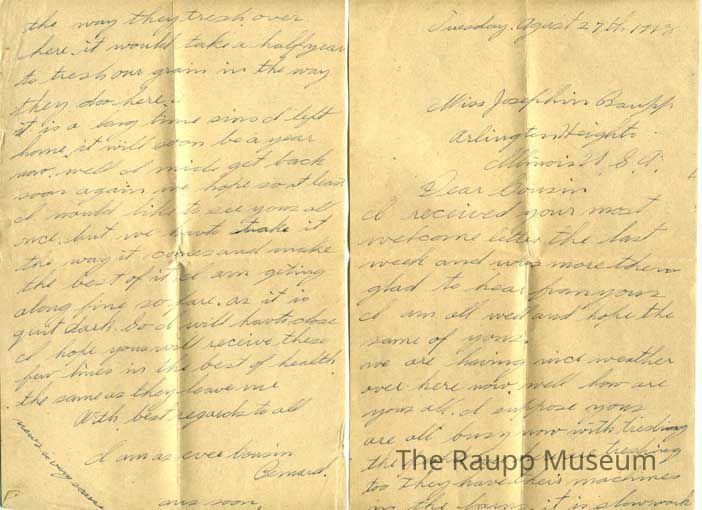 Tuesday. Agust 27th 1918
Miss Josephin Raupp
Arlington Heights
Illinois U. S. A.
Dear Cousin
I received your most
welcome letter the last
week and was more then
glad to hear from yous
I am all well and hope the
same of yous.
we are having nice weather
over here now. well how are
yous all. I suppose yous
are all busy now with treshing
the
too. They have their machines
in the barns, it is slow work
the way they tresh over
here it would take a half year
to tresh our grain in the way
they doo here.
it is a long time sinc I left
home, it will soon be a year
now. well I mide get back
soon again we hope so at least
I would like to see yous all
once, but we havto take it
the way it comes and make
the best of it I am geting
along fine so fare. as it is
quit dark. So I will havto close
I hope yous will receive these
few lines in the best of health
the same as they leave me
With best regards to all
I am as ever Cousin
Bernard.
ans soon.
The Raupp Museum